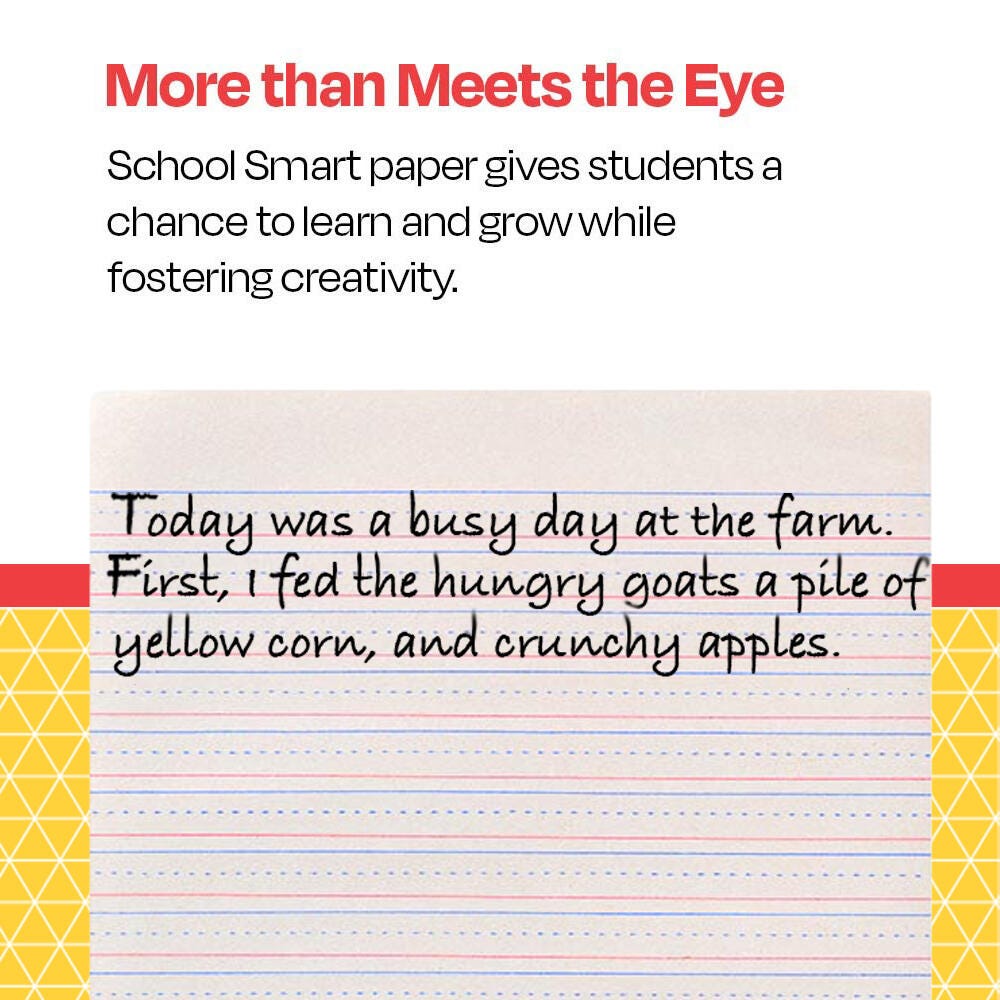 More than Meets the Eye
School Smart paper gives students a
chance to learn and grow while
fostering creativity.
Today was a busy day at the farm.
First, I fed the hungry goats a pile of
yellow corn, and crunchy apples.